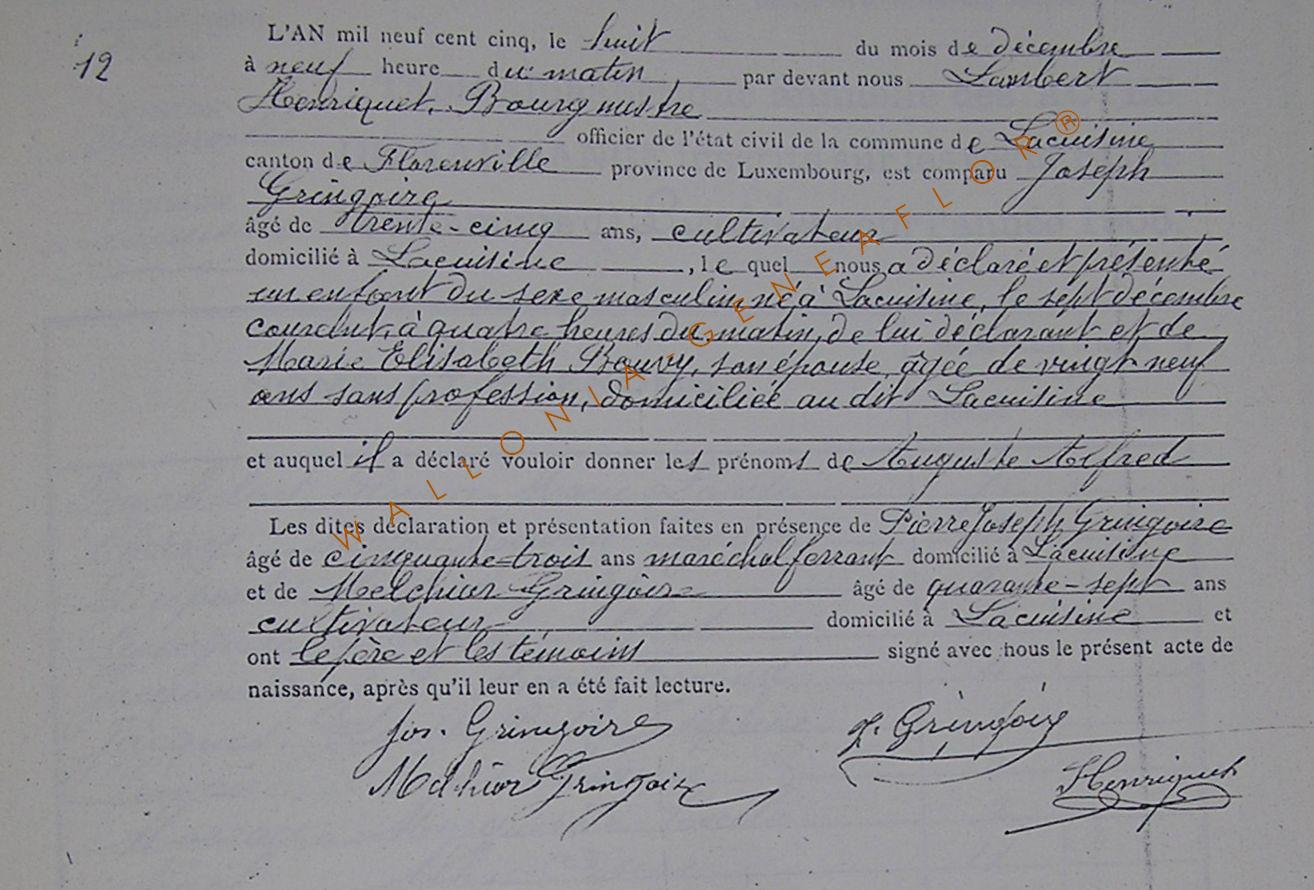 12
L'AN mil neuf cent cinq, le huit du mois de décembre
à neuf heure du matin par devant nous Lambert
Henriquet, Bourgmestre
officier de l'état civil de la commune de Lacuisine
canton de Florenville province de Luxembourg, est comparu Joseph
Gringoire
âgé de trente-cinq ans, cultivateur
domicilié à Lacuisine, le quel nous a déclaré et présenté
un enfant du sexe masculin, né à Lacuisine, le sept décembre
courant, à quatre heures du matin, de lui déclarant et de
Marie Elisabeth Bouvy, son épouse, âgée de vingt neuf
ans sans profession, domiciliée au dit Lacuisine
et auquel il a déclaré vouloir donner les prénoms de Auguste Alfred
Les dites déclaration et présentation faites en présence de Pierre Joseph Gringoire
âgé de cinquante-trois ans maréchal ferrant domicilié à Lacuisine
et de Melchior Gringoire âgé de quarante-sept ans
cultivateur domicilié à Lacuisine et
ont le père et les témoins signé avec nous le présent acte de
naissance, après qu'il leur en a été fait lecture.
Jos. Gringoire Gringoire
Melchior Gringoire Henriquet
WALLONIA-GENEAFLOR®